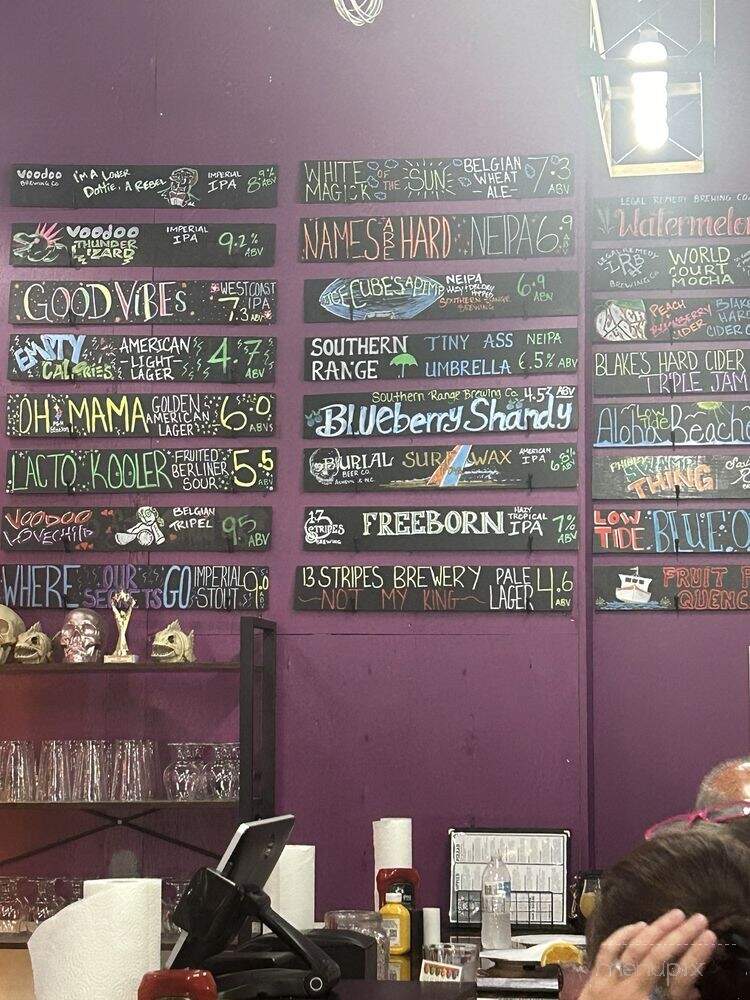 VOODOO
BREWING CO
I'M A LONER
Dottie, A REBEL
IMPERIAL
IPA
ABV
VOODOO
THUNDER
LIZARD
IMPERIAL
IPA
9.2%
ABV
GOOD VIBES
WEST COAST
IPA
7.3 ABV
EMPTY
CALORIES
AMERICAN
-LIGHT-
LAGER
4.7
ABV
OH MAMA
GOLDEN
AMERICAN
LAGER
6.0
LACTO KOOLER
FRUITED
BERLINER
SOUR
5.5
ABV
VOODOO
LOVECHILD
BELGIAN
TRIPEL
9.5
ABV
WHERE OUR
SECRETS GO
IMPERIAL
STOUT
WHITE
MAGICK
OF
THE
SUN
BELGIAN
WHEAT
-ALE-
7.3
ABV
NAMES ARE HARD
NEIPA
6.9
ABV
ICE CUBE'S A PIMP
NEIPA
SOUTHERN RANGE
BREWING
6.9
ABV
SOUTHERN
RANGE
TINY ASS
UMBRELLA
NEIPA
6.5% ABV
Southern Range Brewing Co. 4.5% ABV
BLUeberry Shandy
BURIAL
BEER CO.
SURF WAX
AMERICAN
IPA
ABV
13
STRIPES
BREWING
FREEBORN
HAZY
TROPICAL
IPA
7%
ABV
13 STRIPES BREWERY
NOT MY KING
PALE
LAGER
4.6
ABV
LEGAL REMEDY BREWING CO
Watermelon
LEGAL REMEDY
LRB
BREWING CO
WORLD
COURT
MOCHA
PEACH
CIDER
BLAKE'S HARD CIDER
TRIPLE JAM
Low
Tide
Aloha Beaches
THING
LOW
TIDE
BLUE
FRUIT
QUENC
menupix